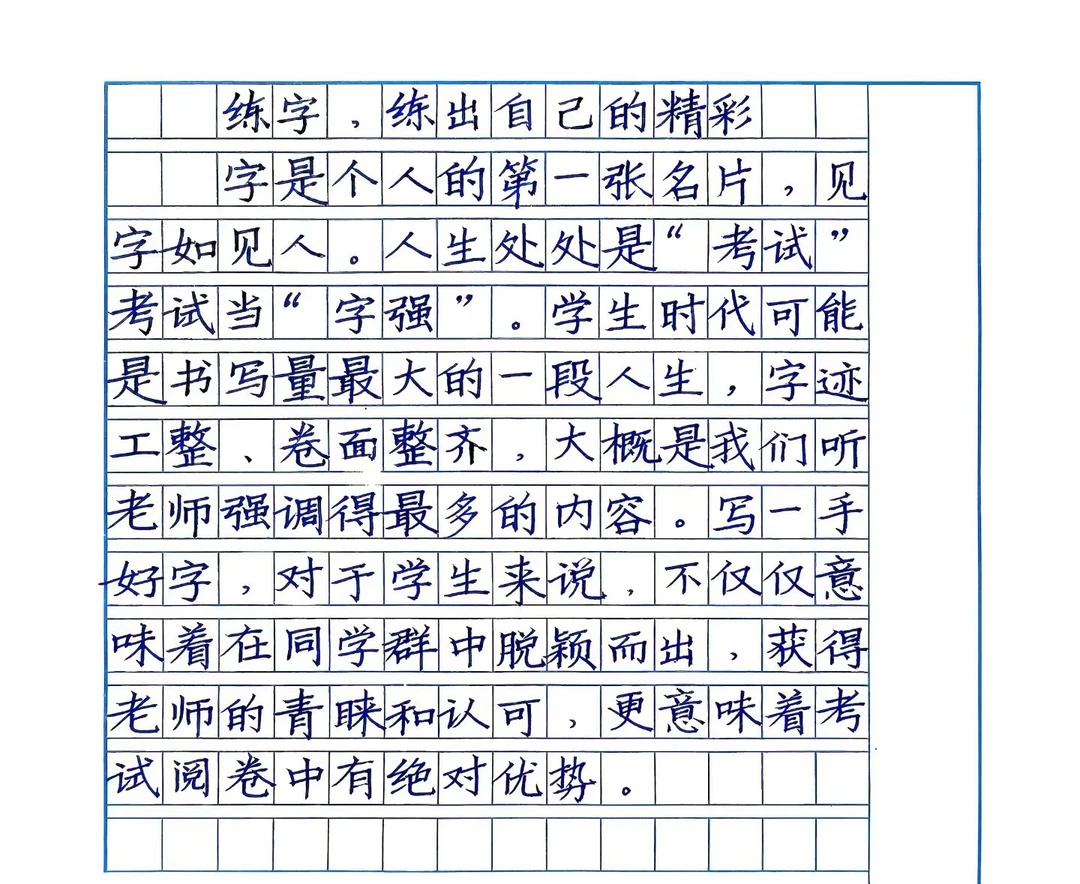 练字，练出自己的精彩
字是个人的第一张名片，见
字如见人。人生处处是“考试”
考试当“字强”。学生时代可能
是书写量最大的一段人生，字迹
工整、卷面整齐，大概是我们听
老师强调得最多的内容。写一手
好字，对于学生来说，不仅仅意
味着在同学群中脱颖而出，获得
老师的青睐和认可，更意味着考
试阅卷中有绝对优势。